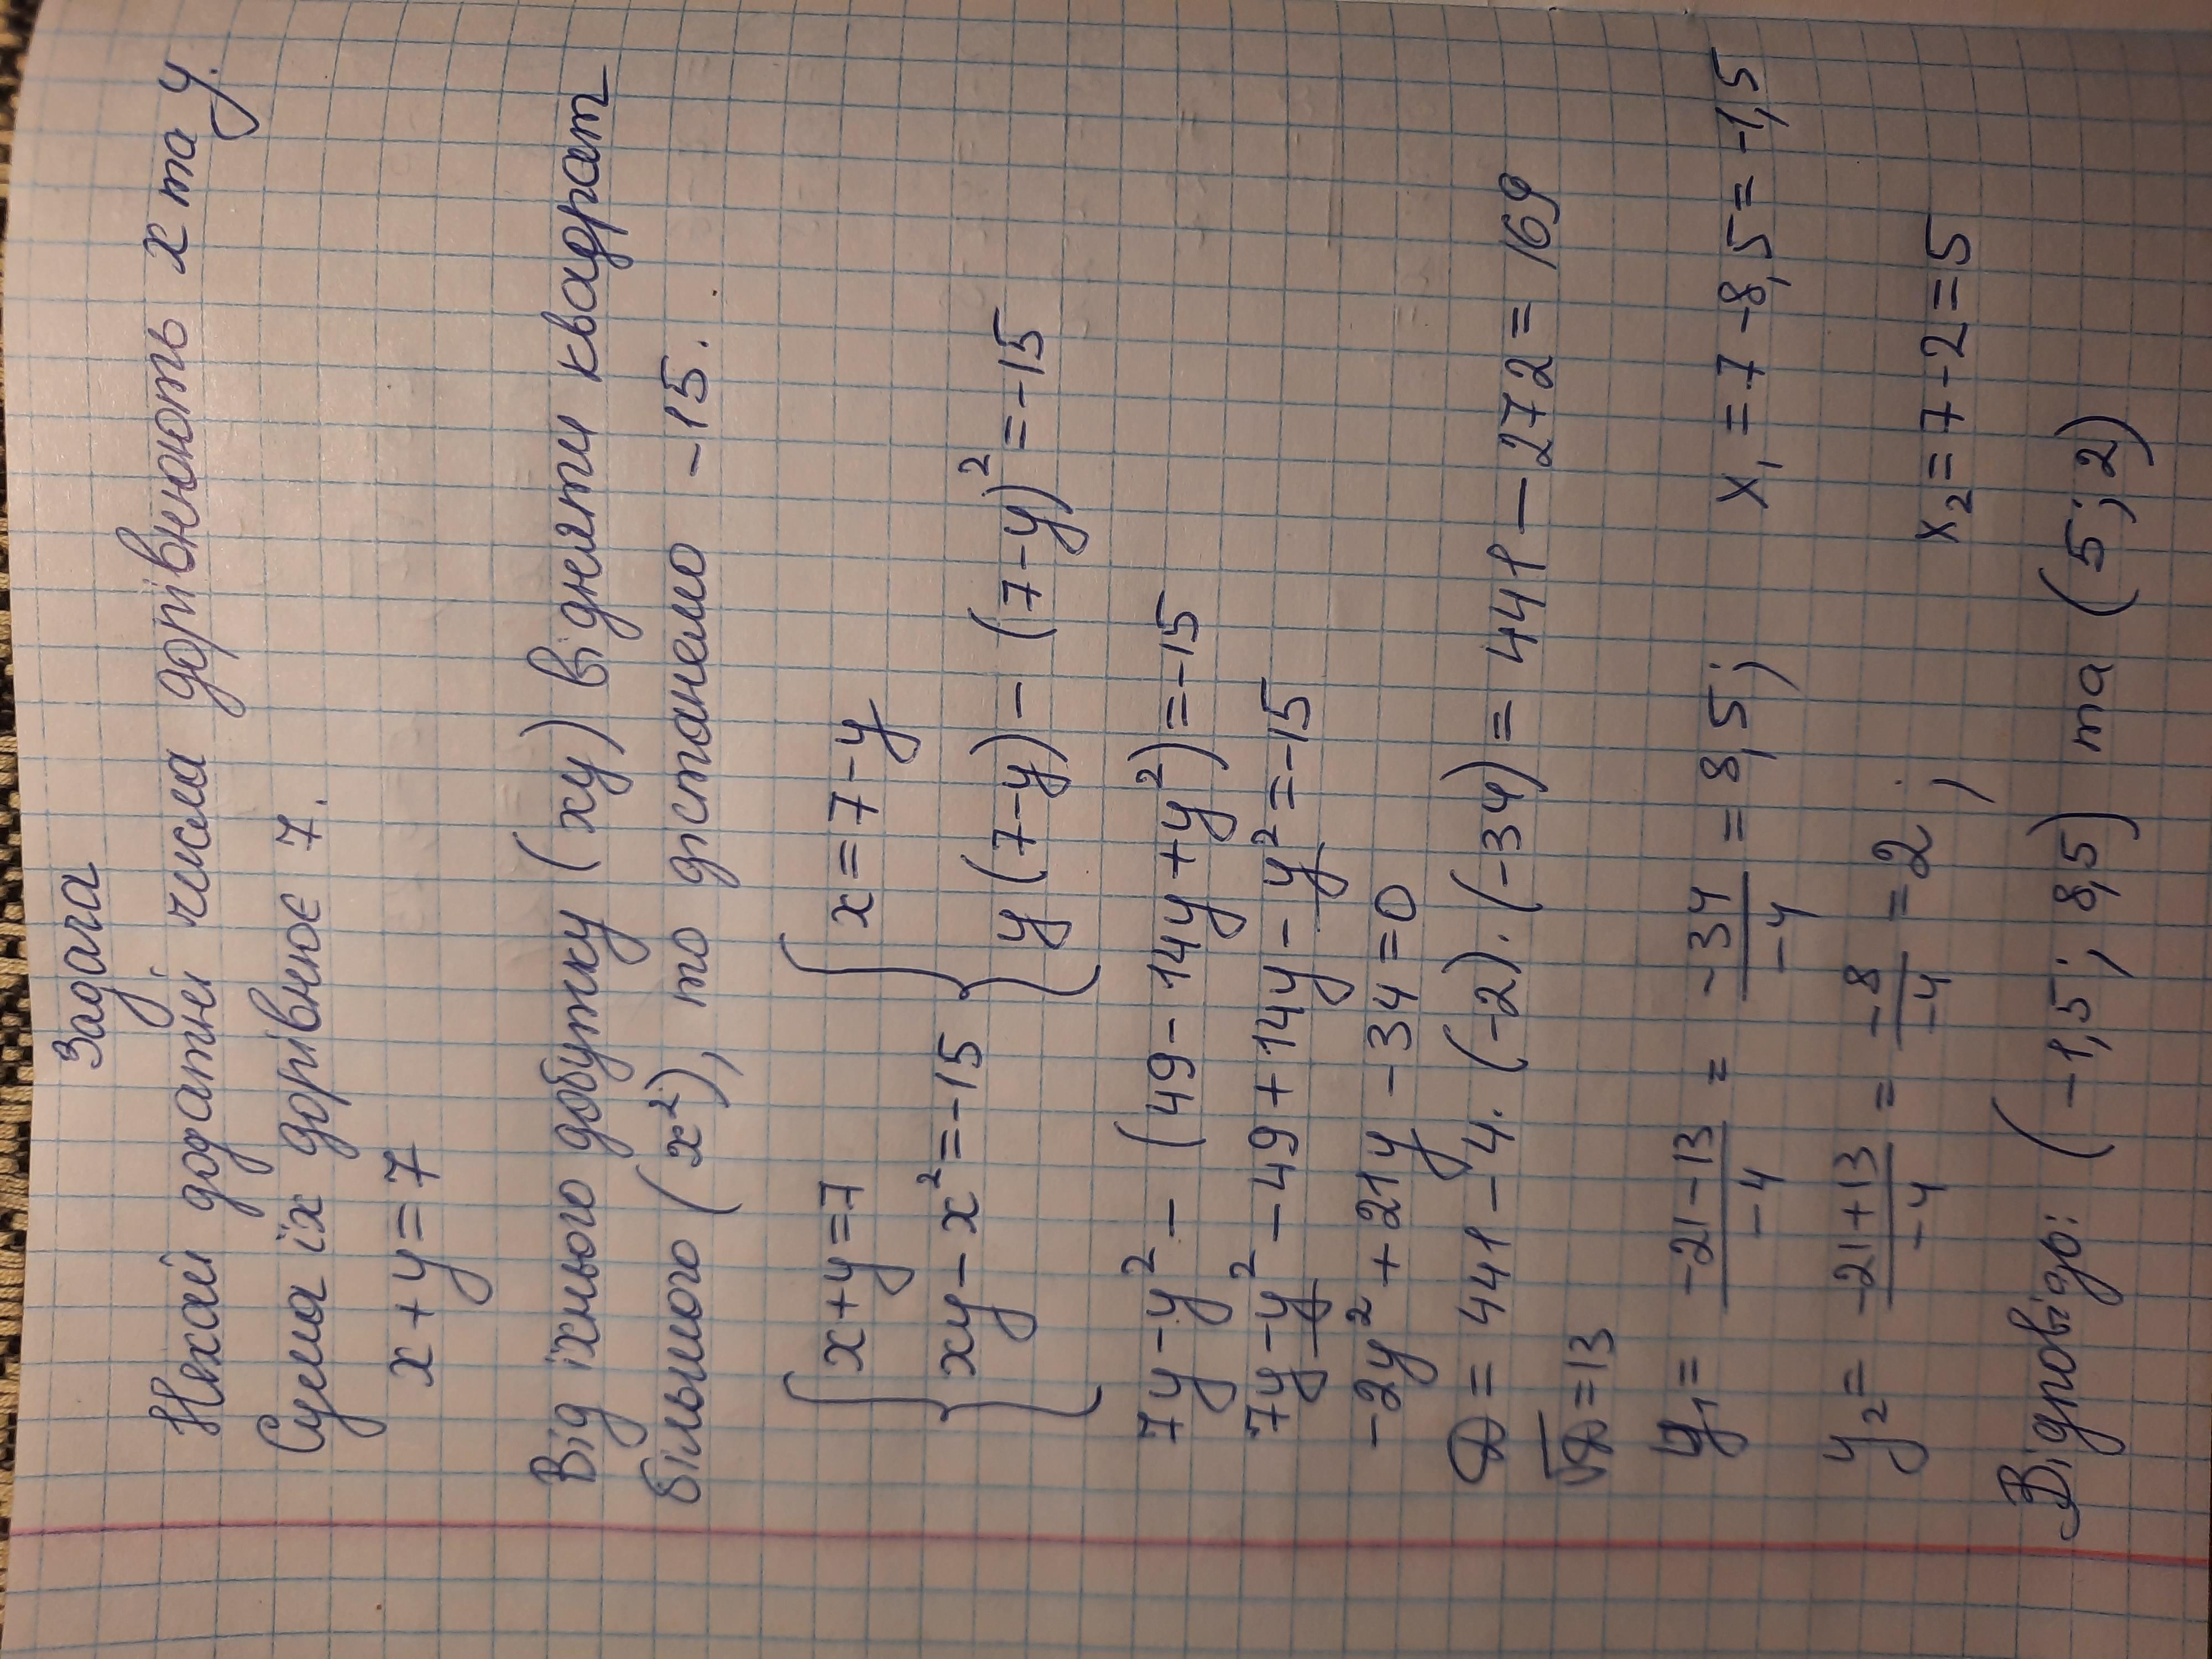 Задача
Нехай додатні числа дорівнюють x та y.
Сума їх дорівнює 7.
x + y = 7
Від їхнього добутку (xy) відняти квадрат
більшого (x²), то дістанемо -15.
{ x+y=7 { x=7-y
{ xy-x²=-15 { y(7-y)-(7-y)²=-15
7y-y²-(49-14y+y²)=-15
7y-y²-49+14y-y²=-15
-2y²+21y-34=0
D=441-4·(-2)·(-34)=441-272=169
√D=13
y₁= (-21-13)/-4 = -34/-4 = 8,5; x₁=7-8,5=-1,5
y₂= (-21+13)/-4 = -8/-4 = 2; x₂=7-2=5
Відповідь: (-1,5; 8,5) та (5; 2)